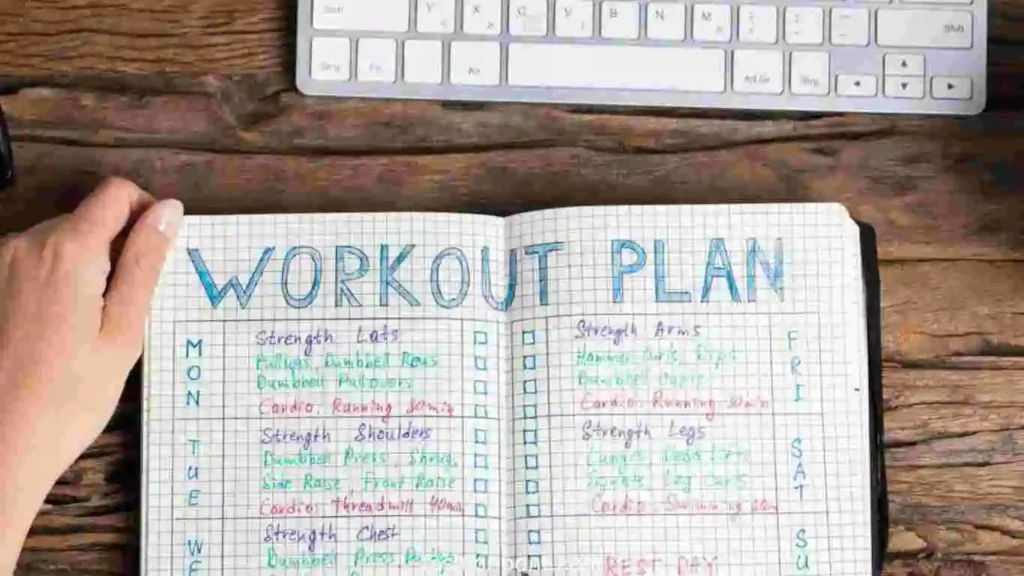 WORKOUT PLAN
MON
Strength Lats
Pullups, Dumbbell Rows
Dumbbell Pullovers
Cardio. Running 30min
TUE
Strength Shoulders
Dumbbell Press, Shrug
Side Raise, Front Raise
Cardio threadmill 40min
WE
Strength Chest
Dumbbell Press
FRI
Strength Arms
Hammer Curls, Dips
Dumbbell
Cardio. Running 30min
SAT
Strength Legs
Lunges
Leg Curls
Cardio. Swimming
SU
REST DAY
Y X C V B N M
Shift
Alt